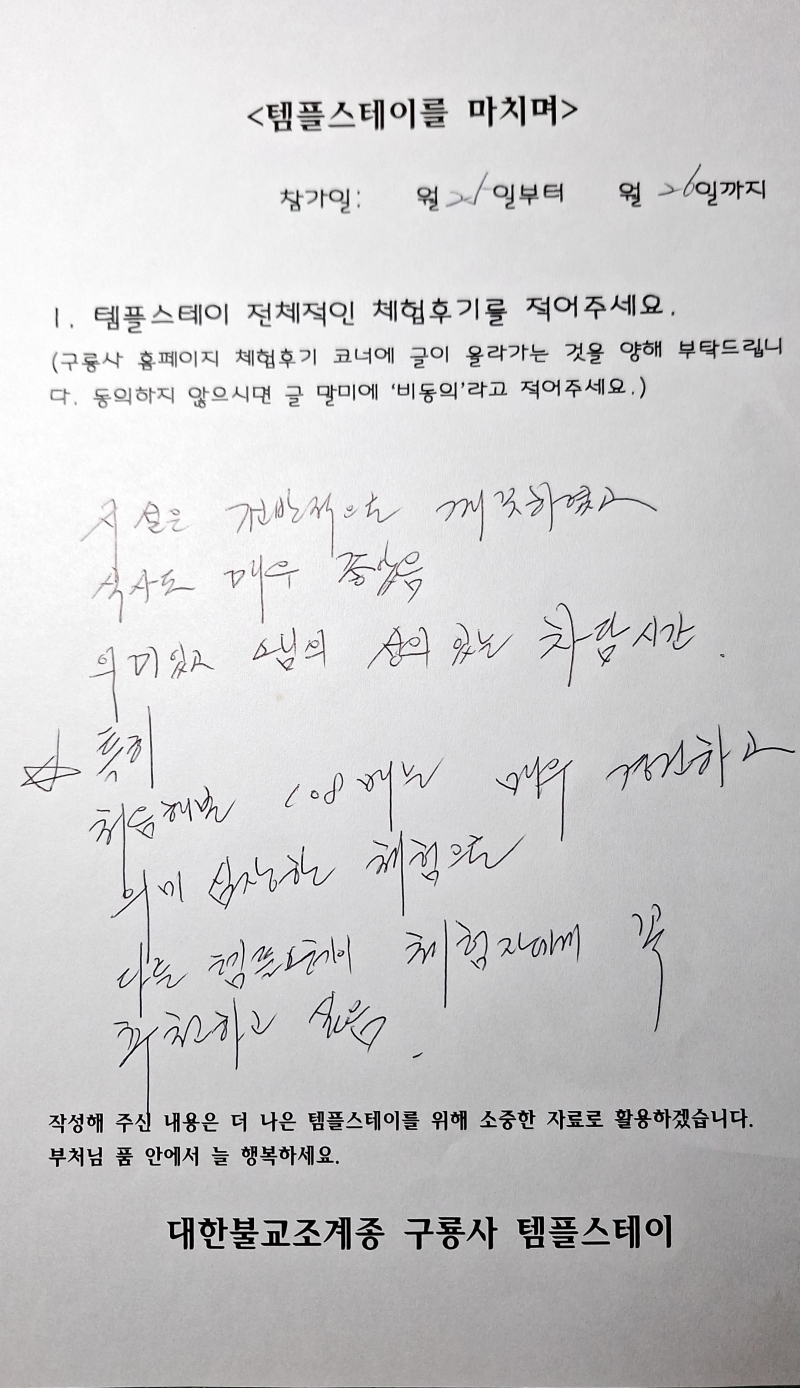 <템플스테이를 마치며>
참가일: 월 25일부터 월 26일까지
1. 템플스테이 전체적인 체험후기를 적어주세요.
(구룡사 홈페이지 체험후기 코너에 글이 올라가는 것을 양해 부탁드립니
다. 동의하지 않으시면 글 말미에 '비동의'라고 적어주세요.)
시설은 전반적으로 깨끗하였고
식사도 매우 좋았음
의미있고 스님의 성의 있는 차담시간.
☆ 특히
처음해본 108배는 매우 경건하고
의미 심장한 체험으로
다른 템플스테이 체험자에게 꼭
추천하고 싶음.
작성해 주신 내용은 더 나은 템플스테이를 위해 소중한 자료로 활용하겠습니다.
부처님 품 안에서 늘 행복하세요.
대한불교조계종 구룡사 템플스테이